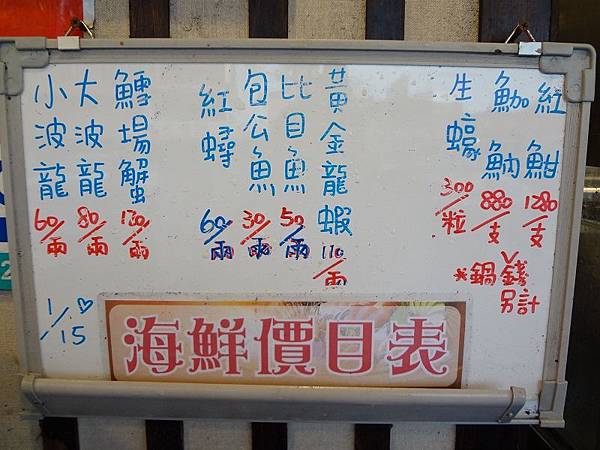 紅魽
1280/支
魶魶
880/支
生蠔
300/粒
*鍋錢
另計
黃金龍蝦
110/兩
比目魚
50/兩
包公魚
30/兩
紅蟳
60/兩
鱈場蟹
130/兩
大波龍
80/兩
小波龍
60/兩
1/15
海鮮價目表
2